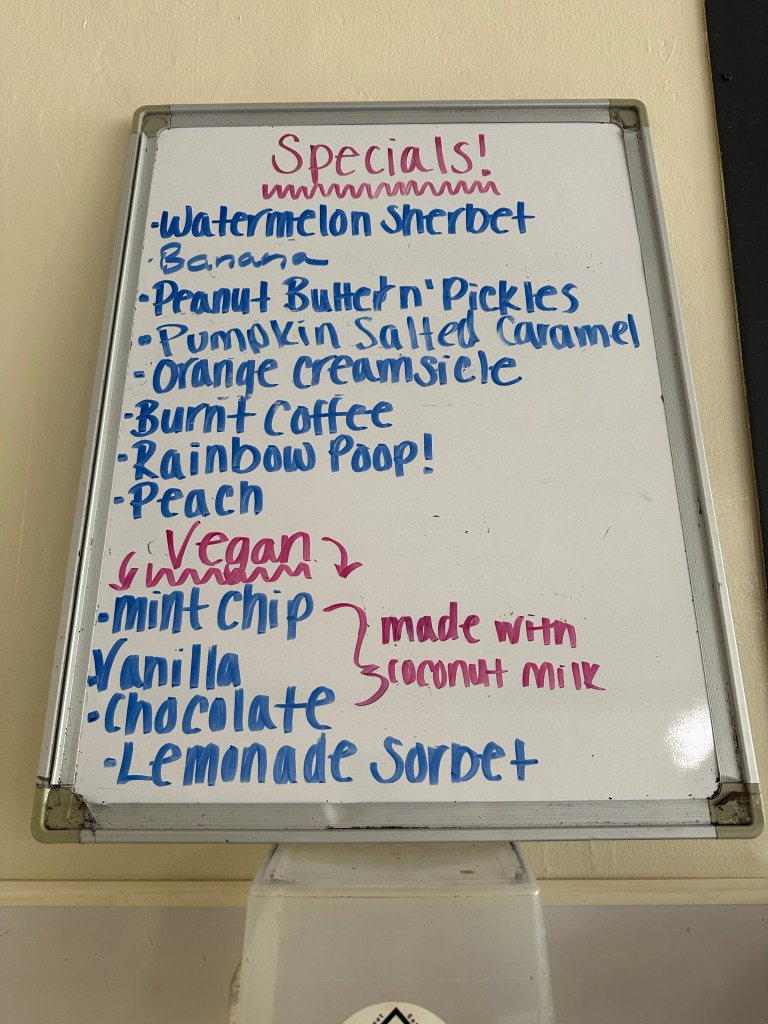 Specials!
·Watermelon Sherbet
·Banana
·Peanut Butter n' Pickles
·Pumpkin Salted Caramel
·Orange Creamsicle
·Burnt Coffee
·Rainbow Poop!
·Peach
Vegan
·mint chip
·Vanilla
·Chocolate
made with
coconut milk
·Lemonade Sorbet